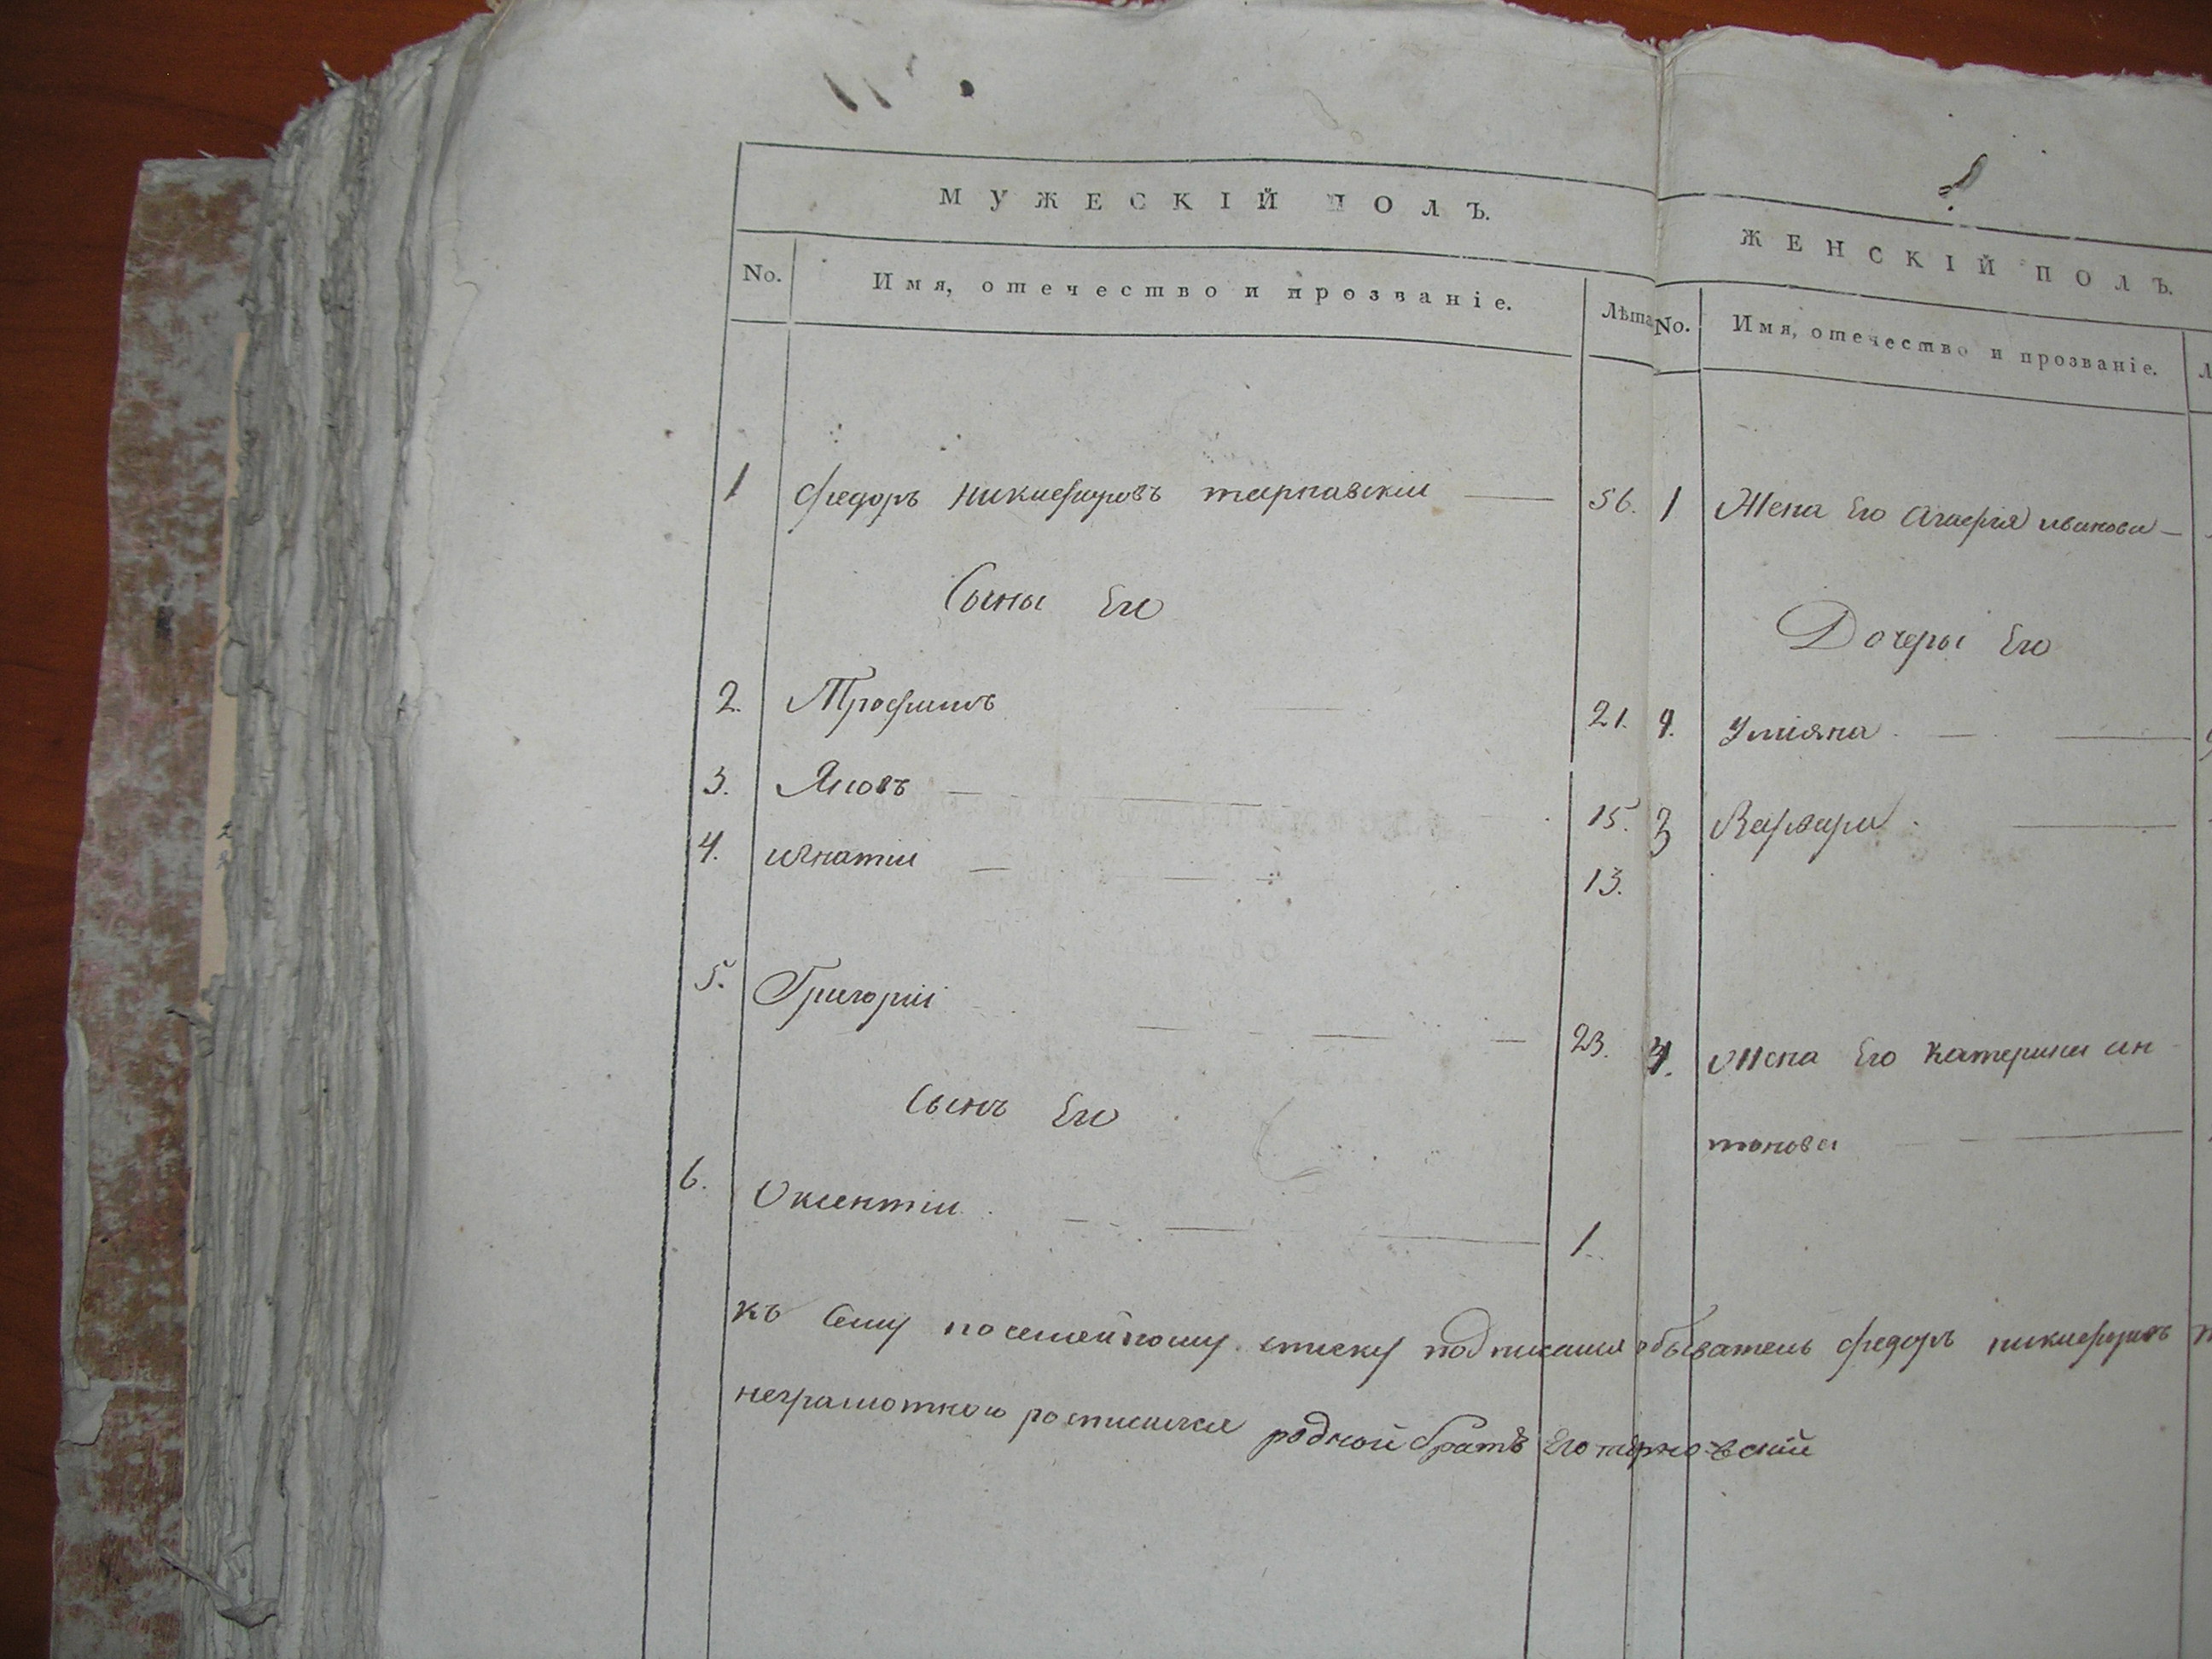 МУЖЕСКІЙ ПОЛЪ.
No. Имя, отечество и прозваніе. Лѣта
1 Федоръ Никифоровъ тарнавскіи 56.
Сыны Его
2. Трофимъ 21.
3. Яковъ 15.
4. игнатіи 13.
5. Григоріи 23.
Сынъ Его
6. Оксентіи 1.
ЖЕНСКІЙ ПОЛЪ.
No. Имя, отечество и прозваніе.
1 Жена Его Агафія иванова
Дочеры Его
2. Улияна
3 Варвара
4. Жена Его Катерина ан
тонова
къ Сему посемейному списку подписался обыватель федоръ никифоровъ
неграмотного росписался родной братъ Его тарновский